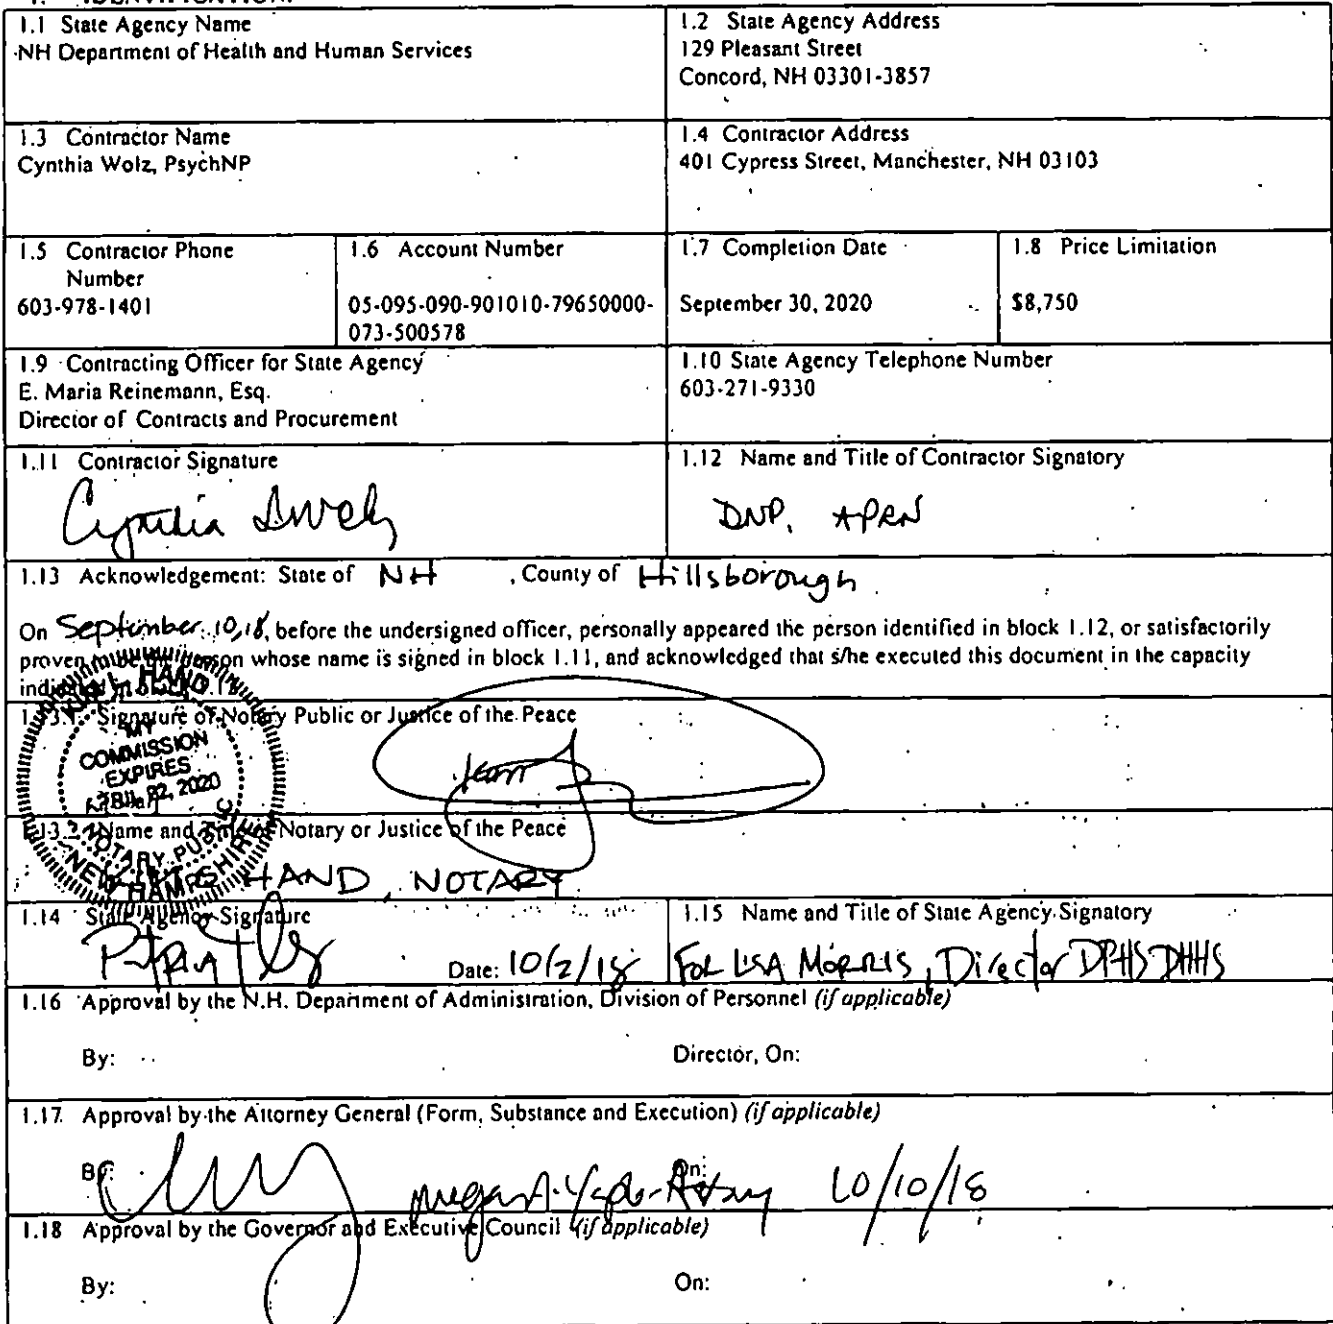 1. IDENTIFICATION.
1.1 State Agency Name
NH Department of Health and Human Services
1.2 State Agency Address
129 Pleasant Street
Concord, NH 03301-3857
1.3 Contractor Name
Cynthia Wolz, PsychNP
1.4 Contractor Address
401 Cypress Street, Manchester, NH 03103
1.5 Contractor Phone
Number
603-978-1401
1.6 Account Number
05-095-090-901010-79650000-
073-500578
1.7 Completion Date
September 30, 2020
1.8 Price Limitation
$8,750
1.9 Contracting Officer for State Agency
E. Maria Reinemann, Esq.
Director of Contracts and Procurement
1.10 State Agency Telephone Number
603-271-9330
1.11 Contractor Signature
Cynthia
1.12 Name and Title of Contractor Signatory
DNP, APRN
1.13 Acknowledgement: State of NH , County of Hillsborough
On September 10, 18, before the undersigned officer, personally appeared the person identified in block 1.12, or satisfactorily
proven to be the person whose name is signed in block 1.11, and acknowledged that s/he executed this document in the capacity
indicated in block 1.12.
1.13.1 Signature of Notary Public or Justice of the Peace
HAND
MY
COMMISSION
EXPIRES
APRIL 22, 2020
NOTARY PUBLIC
NEW HAMPSHIRE
1.13.2 Name and Title of Notary or Justice of the Peace
HAND, NOTARY
1.14 State Agency Signature
Date: 10/2/18
1.15 Name and Title of State Agency Signatory
FOR LISA MORRIS, Director DPHS DHHS
1.16 Approval by the N.H. Department of Administration, Division of Personnel (if applicable)
By:
Director, On:
1.17 Approval by the Attorney General (Form, Substance and Execution) (if applicable)
By:
On:
10/10/18
1.18 Approval by the Governor and Executive Council (if applicable)
By:
On: